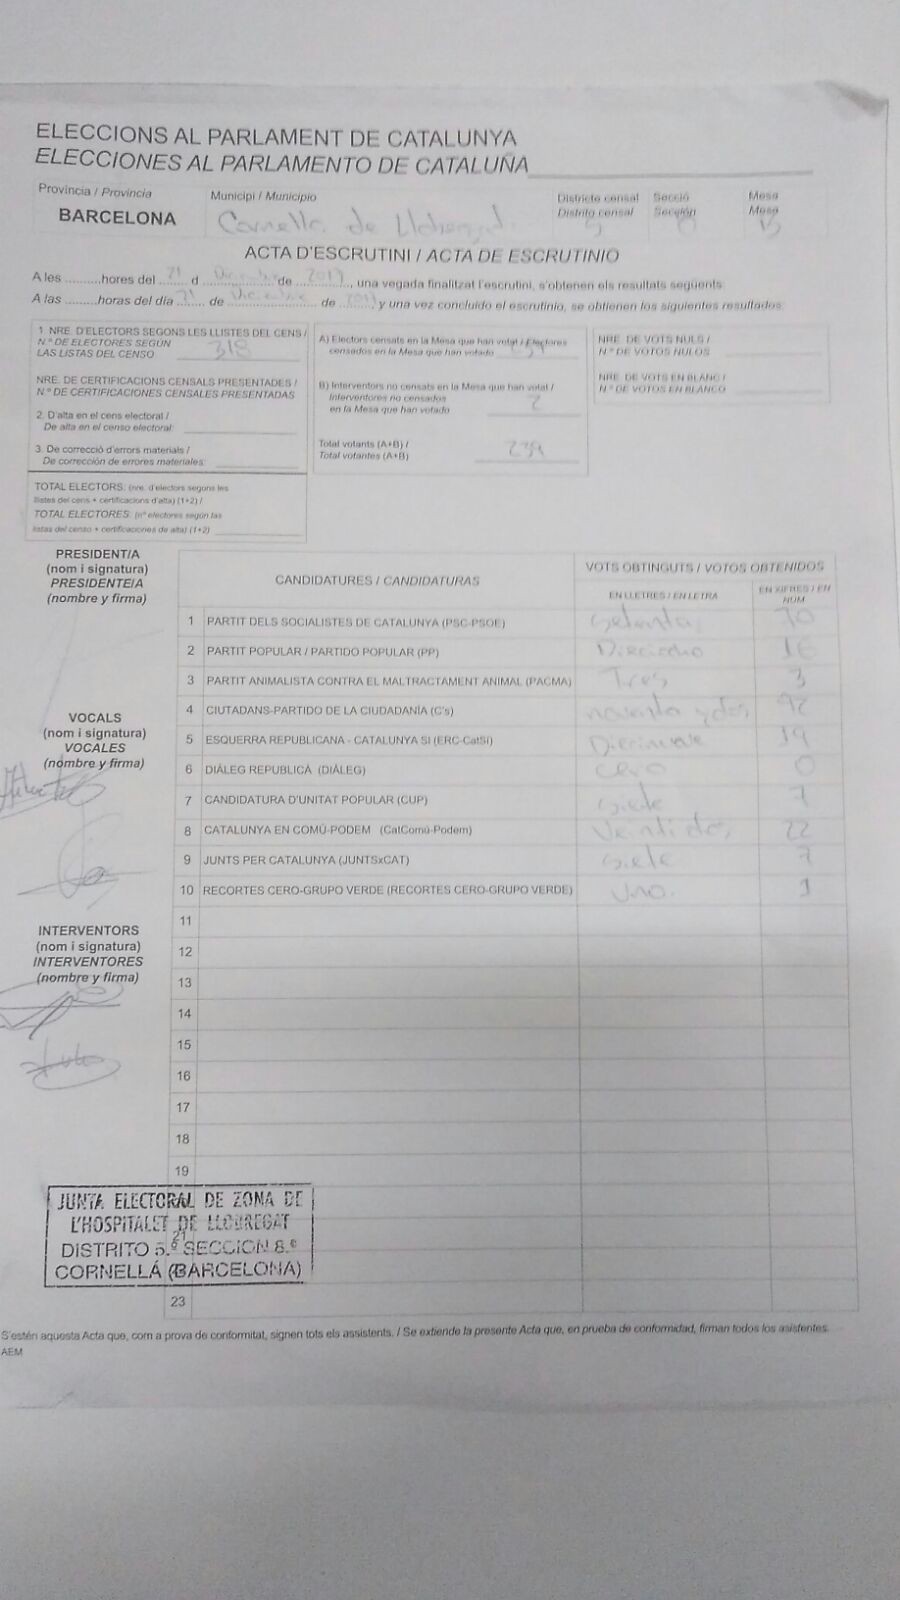 ELECCIONS AL PARLAMENT DE CATALUNYA
ELECCIONES AL PARLAMENTO DE CATALUÑA
Província / Provincia
Municipi / Municipio
Districte censal Secció Mesa
Distrito censal Sección Mesa
BARCELONA
Cornella de Llobregat
5 B
ACTA D'ESCRUTINI / ACTA DE ESCRUTINIO
A les ..........hores del 21 d Diciembre de 2017, una vegada finalitzat l'escrutini, s'obtenen els resultats següents:
A las .........horas del día 21 de Diciembre de 2017 y una vez concluido el escrutinio, se obtienen los siguientes resultados:
1. NRE. D'ELECTORS SEGONS LES LLISTES DEL CENS /
N.º DE ELECTORES SEGÚN
LAS LISTAS DEL CENSO 318
NRE. DE CERTIFICACIONS CENSALS PRESENTADES /
N.º DE CERTIFICACIONES CENSALES PRESENTADAS
2. D'alta en el cens electoral /
De alta en el censo electoral:
3. De correcció d'errors materials /
De corrección de errores materiales:
TOTAL ELECTORS: (nre. d'electors segons les
llistes del cens + certificacions d'alta) (1+2) /
TOTAL ELECTORES: (nº electores según las
listas del censo + certificaciones de alta) (1+2)
A) Electors censats en la Mesa que han votat / Electores
censados en la Mesa que han votado
B) Interventors no censats en la Mesa que han votat /
Interventores no censados
en la Mesa que han votado 2
Total votants (A+B) /
Total votantes (A+B) 239
NRE. DE VOTS NULS /
N.º DE VOTOS NULOS
NRE. DE VOTS EN BLANC /
N.º DE VOTOS EN BLANCO
PRESIDENT/A
(nom i signatura)
PRESIDENTE/A
(nombre y firma)
VOCALS
(nom i signatura)
VOCALES
(nombre y firma)
INTERVENTORS
(nom i signatura)
INTERVENTORES
(nombre y firma)
CANDIDATURES / CANDIDATURAS
VOTS OBTINGUTS / VOTOS OBTENIDOS
EN LLETRES / EN LETRA
EN XIFRES / EN NÚM
1 PARTIT DELS SOCIALISTES DE CATALUNYA (PSC-PSOE) setenta 70
2 PARTIT POPULAR / PARTIDO POPULAR (PP) Dieciocho
3 PARTIT ANIMALISTA CONTRA EL MALTRACTAMENT ANIMAL (PACMA) Tres 3
4 CIUTADANS-PARTIDO DE LA CIUDADANÍA (C's) noventa y dos 92
5 ESQUERRA REPUBLICANA - CATALUNYA SÍ (ERC-CatSí) Diecinueve 19
6 DIÀLEG REPUBLICÀ (DIÀLEG) cero 0
7 CANDIDATURA D'UNITAT POPULAR (CUP) siete 7
8 CATALUNYA EN COMÚ-PODEM (CatComú-Podem) Veintidos 22
9 JUNTS PER CATALUNYA (JUNTSxCAT) siete 7
10 RECORTES CERO-GRUPO VERDE (RECORTES CERO-GRUPO VERDE) Uno. 1
11
12
13
14
15
16
17
18
19
21
23
JUNTA ELECTORAL DE ZONA DE
L'HOSPITALET DE LLOBREGAT
DISTRITO 5.º SECCION 8.ª
CORNELLÁ (BARCELONA)
S'estén aquesta Acta que, com a prova de conformitat, signen tots els assistents. / Se extiende la presente Acta que, en prueba de conformidad, firman todos los asistentes.
AEM